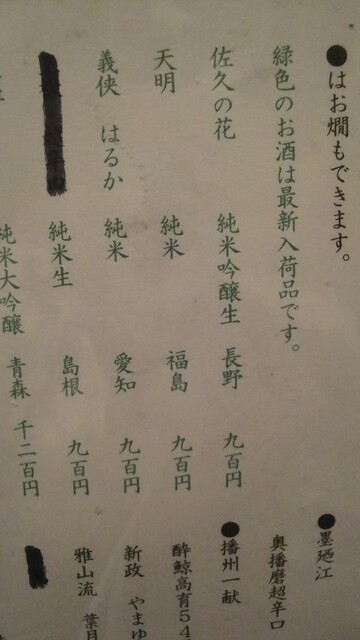 ●はお燗もできます。
緑色のお酒は最新入荷品です。
佐久の花 純米吟醸生 長野 九百円
天明 純米 福島 九百円
義侠 はるか 純米 愛知 九百円
純米生 島根 九百円
純米大吟醸 青森 千二百円
●墨廼江
奥播磨超辛口
●播州一献
酔鯨高育54
新政 やまゆ
雅山流 葉月